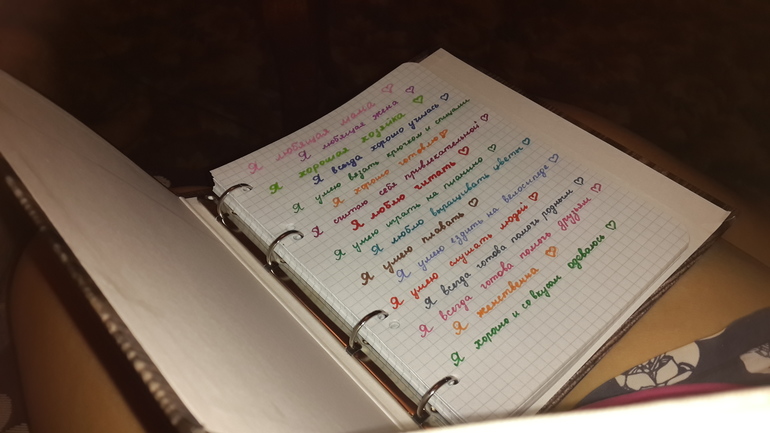 Я любящая мама ♡
Я любящая жена ♡
Я хорошая хозяйка ♡
Я всегда хорошо училась ♡
Я умею вязать крючком и спицами
Я хорошо готовлю ♡
Я считаю себя привлекательной ♡
Я люблю читать ♡
Я умею играть на пианино ♡
Я люблю выращивать цветы ♡
Я умею плавать ♡
Я умею ездить на велосипеде ♡
Я умею слушать людей ♡
Я всегда готова помочь родным ♡
Я всегда готова помочь друзьям ♡
Я женственна ♡
Я хорошо и со вкусом одеваюсь ♡